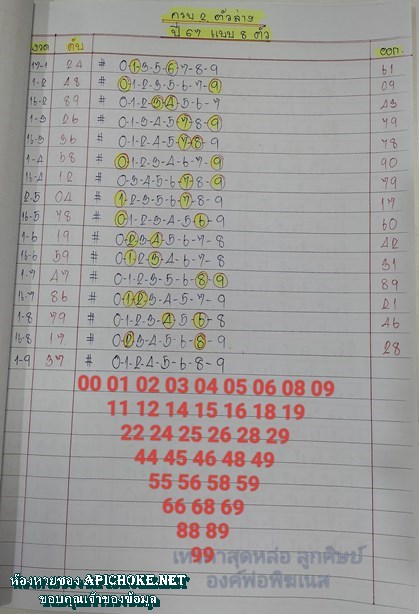 ครบ 2 ตัวล่าง
ปี 67 แบบ 8 ตัว
งวด ดับ ออก.
17-1 24 # 0-1-3-5-6-7-8-9 61
1-2 48 # 0-1-2-3-5-6-7-9 09
16-2 89 # 0-1-2-3-4-5-6-7 43
1-3 26 # 0-1-3-4-5-7-8-9 79
16-3 36 # 0-1-2-4-5-7-8-9 78
1-4 58 # 0-1-2-3-4-6-7-9 90
16-4 12 # 0-3-4-5-6-7-8-9 79
2-5 04 # 1-2-3-5-6-7-8-9 17
16-5 78 # 0-1-2-3-4-5-6-9 60
1-6 19 # 0-2-3-4-5-6-7-8 42
16-6 59 # 0-1-2-3-4-6-7-8 31
1-7 47 # 0-1-2-3-5-6-8-9 89
16-7 86 # 0-1-2-3-4-5-7-9 21
1-8 79 # 0-1-2-3-4-5-6-8 46
16-8 17 # 0-2-3-4-5-6-8-9 28
1-9 37 # 0-1-2-4-5-6-8-9
00 01 02 03 04 05 06 08 09
11 12 14 15 16 18 19
22 24 25 26 28 29
44 45 46 48 49
55 56 58 59
66 68 69
88 89
99
สุดหล่อ ลูกศิษย์
องค์พ่อพิฆเนส
ห้องหวยซอง APICHOKE.NET
ขอบคุณเจ้าของข้อมูล